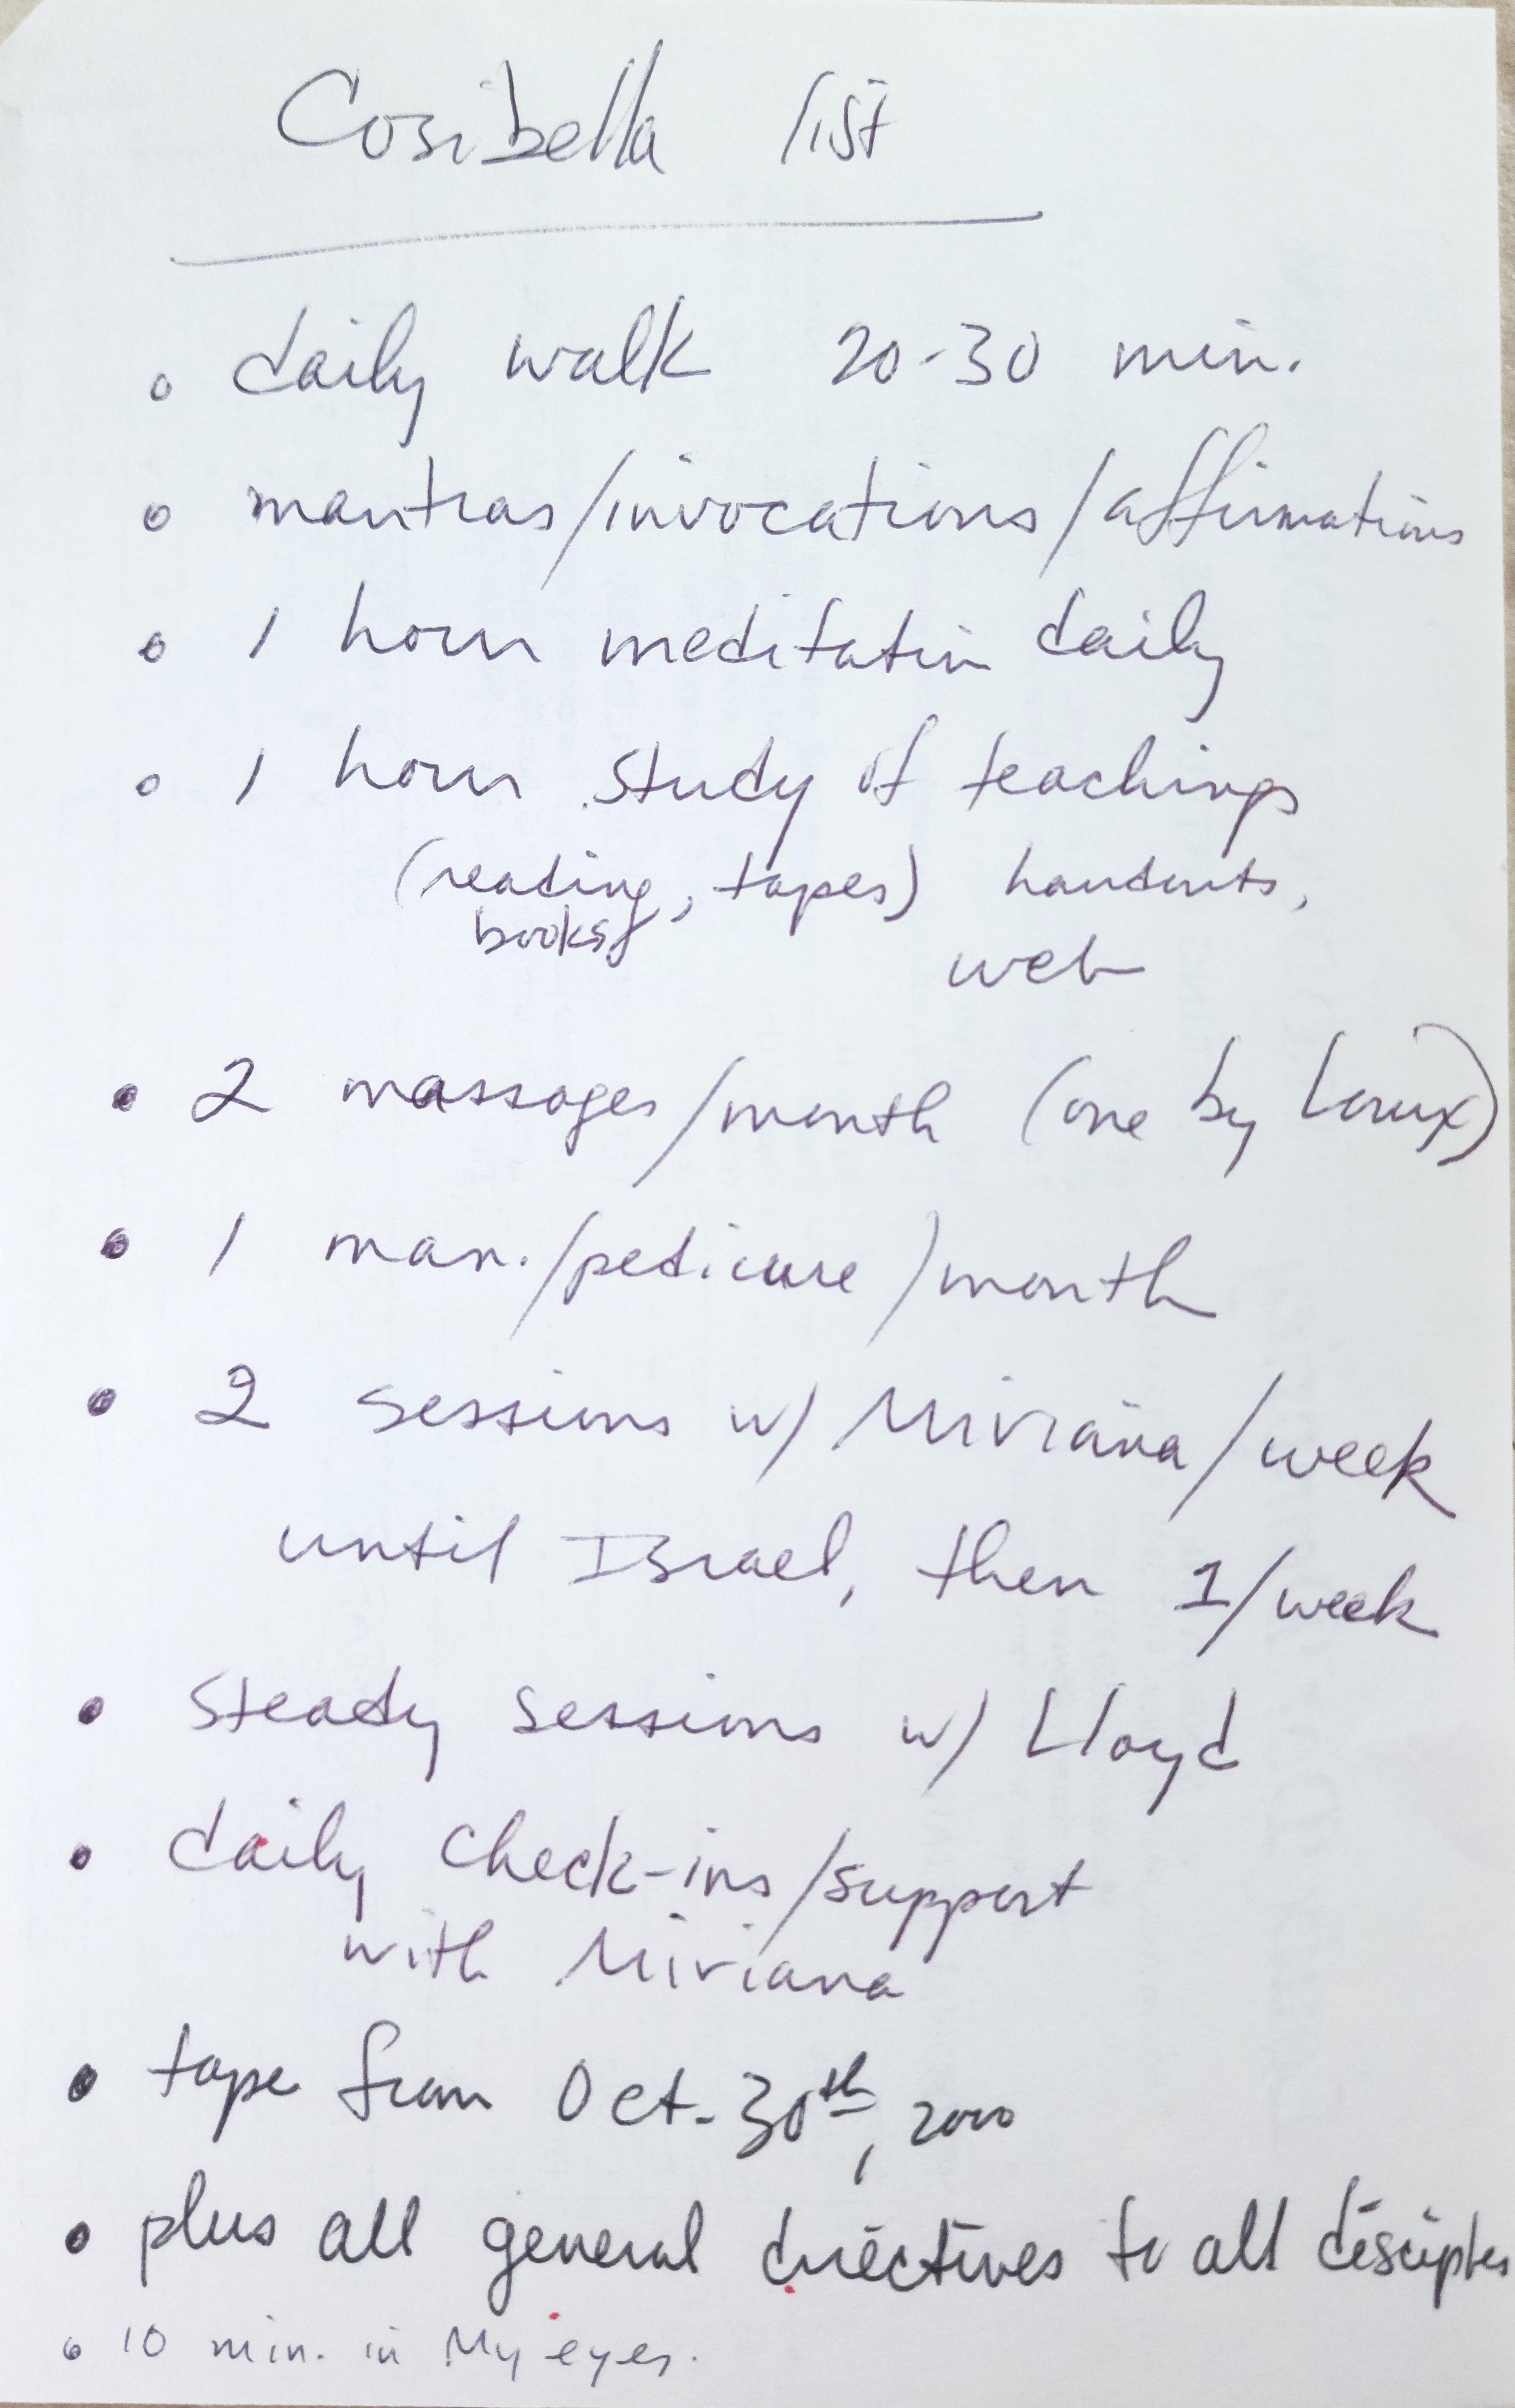 Cosibella list
• daily walk 20-30 min.
• mantras/invocations/affirmations
• 1 hour meditation daily
• 1 hour study of teachings
(reading, tapes) handouts,
books, web
• 2 massages/month (one by
• 1 man./pedicure/month
• 2 sessions w/ Miviana/week
until Israel, then 1/week
• steady sessions w/ Lloyd
• daily check-ins/support
with Miviana
• tape from Oct. 30th, 2000
• plus all general directives to all disciples
• 10 min. in My eyes.